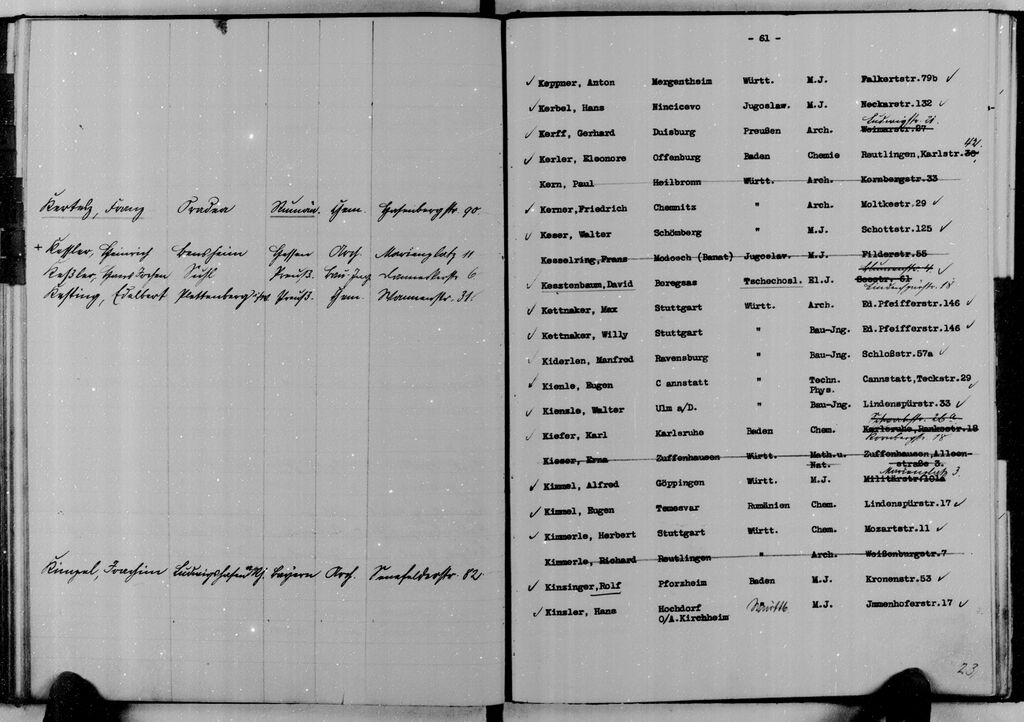 Kertész, Franz Oradea Rumän. Chem. Hasenbergstr. 90.
+ Kessler, Heinrich Bensheim Hessen Arch. Marienplatz 11
Keßler, Hans Jochen Suhl Preuß. Bau-Ing. 6
Kesting, Edelbert Plettenberg Preuß. Chem. Wannenstr. 31.
Kimpel, Joachim Ludwigshafen a/Rh. Bayern Arch. Senefelderstr. 82
- 61 -
✓ Keppner, Anton Mergentheim Württ. M.J. Falkertstr.79b ✓
✓ Kerbel, Hans Nincicevo Jugoslaw. M.J. Neckarstr.132 ✓
Ludwigstr. 21.
✓ Kerff, Gerhard Duisburg Preußen Arch. Weimarstr.27
42.
✓ Kerler, Eleonore Offenburg Baden Chemie Reutlingen,Karlstr.38
Kern, Paul Heilbronn Württ. Arch. Kornbergstr.33
✓ Kerner,Friedrich Chemnitz " Arch. Moltkestr.29 ✓
✓ Keser, Walter Schömberg " M.J. Schottstr.125 ✓
Kesselring,Frans Modosch (Banat) Jugoslaw. M.J. Filderstr.55
✓ Kesztenbaum,David Beregsas Tschechosl. El.J. Seestr. 61
Lindenspürstr. 18
✓ Kettnaker, Max Stuttgart Württ. Arch. Ed.Pfeifferstr.146 ✓
✓ Kettnaker, Willy Stuttgart " Bau-Jng. Ed.Pfeifferstr.146 ✓
✓ Kiderlen, Manfred Ravensburg " Bau-Jng. Schloßstr.57a ✓
✓ Kienle, Eugen C annstatt " Techn. Cannstatt,Teckstr.29 ✓
Phys.
✓ Kienzle, Walter Ulm a/D. " Bau-Jng. Lindenspürstr.33 ✓
✓ Kiefer, Karl Karlsruhe Baden Chem. Karlsruhe,Rankestr.18
Kornbergstr. 18
Kieser, Erna Zuffenhausen Württ. Math.u. Zuffenhausen,Alleen-
Nat. straße 3.
Marienplatz 3.
✓ Kimmel, Alfred Göppingen Württ. M.J. Militärstr.101a
✓ Kimmel, Eugen Temesvar Rumänien Chem. Lindenspürstr.17 ✓
✓ Kimmerle, Herbert Stuttgart Württ. Chem. Mozartstr.11 ✓
Kimmerle, Richard Reutlingen " Arch. Weißenburgstr.7
✓ Kinzinger,Rolf Pforzheim Baden M.J. Kronenstr.53 ✓
✓ Kinzler, Hans Hochdorf Württb M.J. Jmmenhoferstr.17 ✓
O/A.Kirchheim
23.